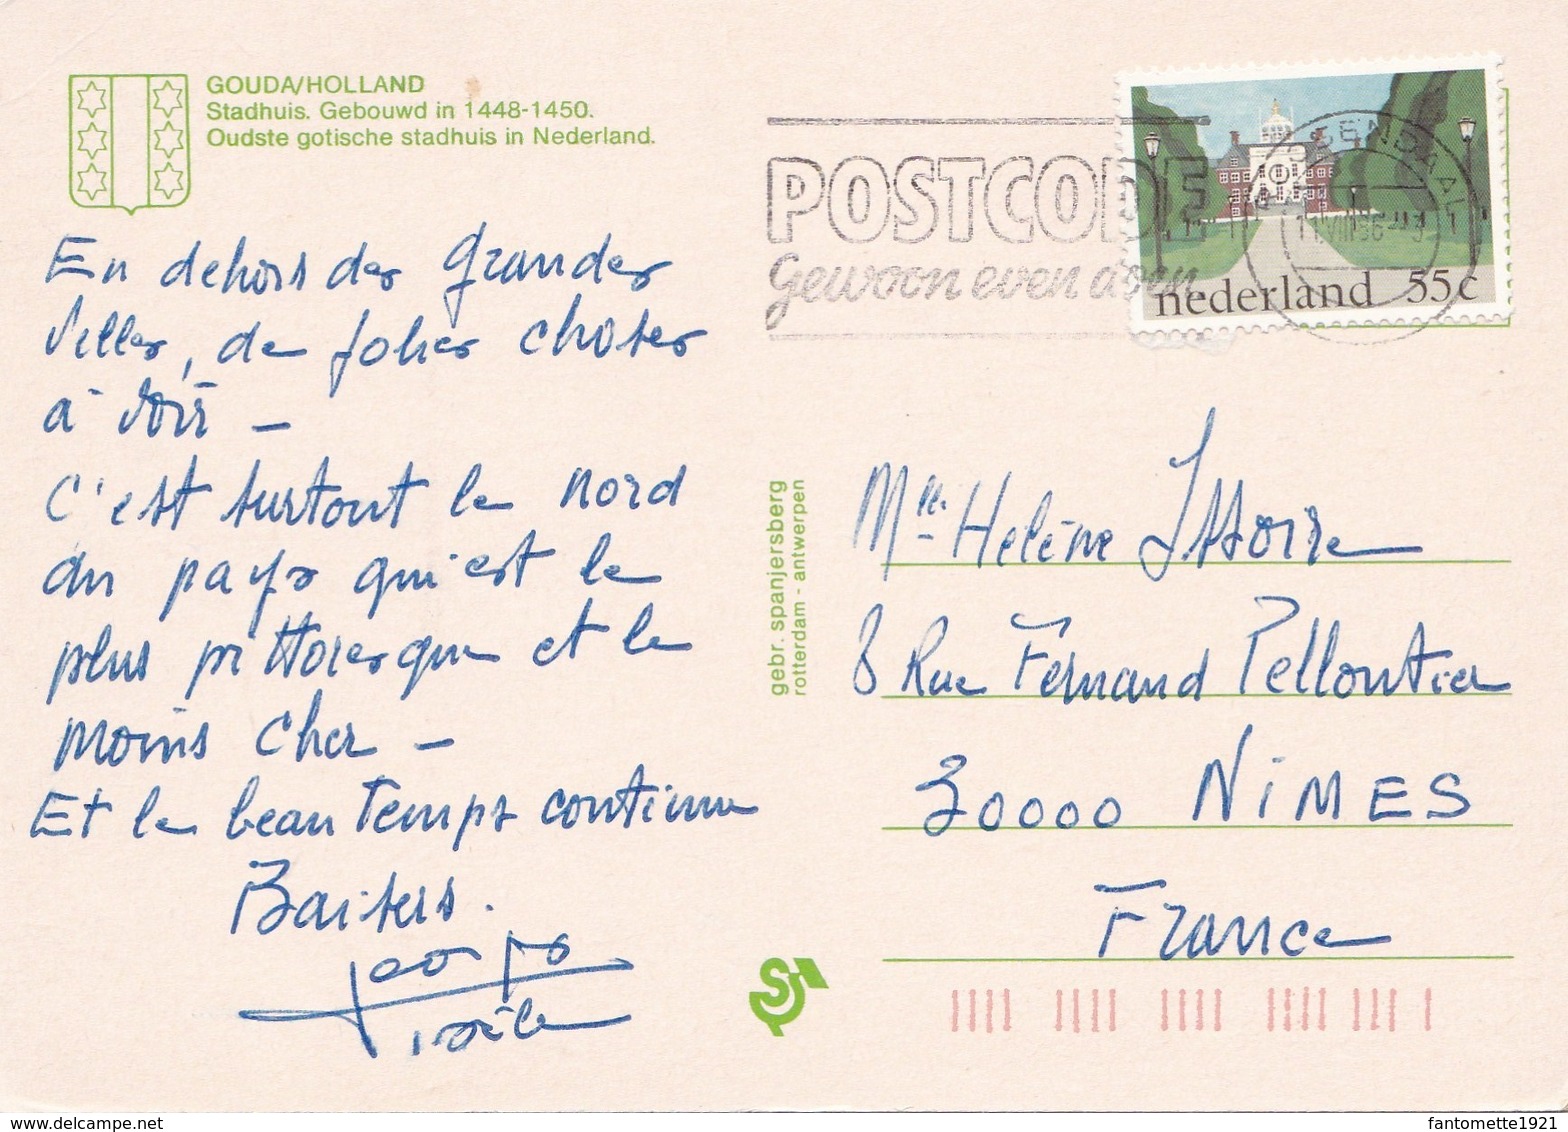 GOUDA/HOLLAND
Stadhuis. Gebouwd in 1448-1450.
Oudste gotische stadhuis in Nederland.
POSTCODE
Gewoon even doen
nederland 55c
En dehors des grandes
villes, de jolies choses
à voir –
C'est surtout le nord
du pays qui est le
plus pittoresque et le
moins cher –
Et le beau temps continue
Baisers.
gebr. spanjersberg
rotterdam - antwerpen
Mlle Hélène Issoire
8 Rue Fernand Pelloutier
30000 NIMES
France
delcampe.net
fantomette1921